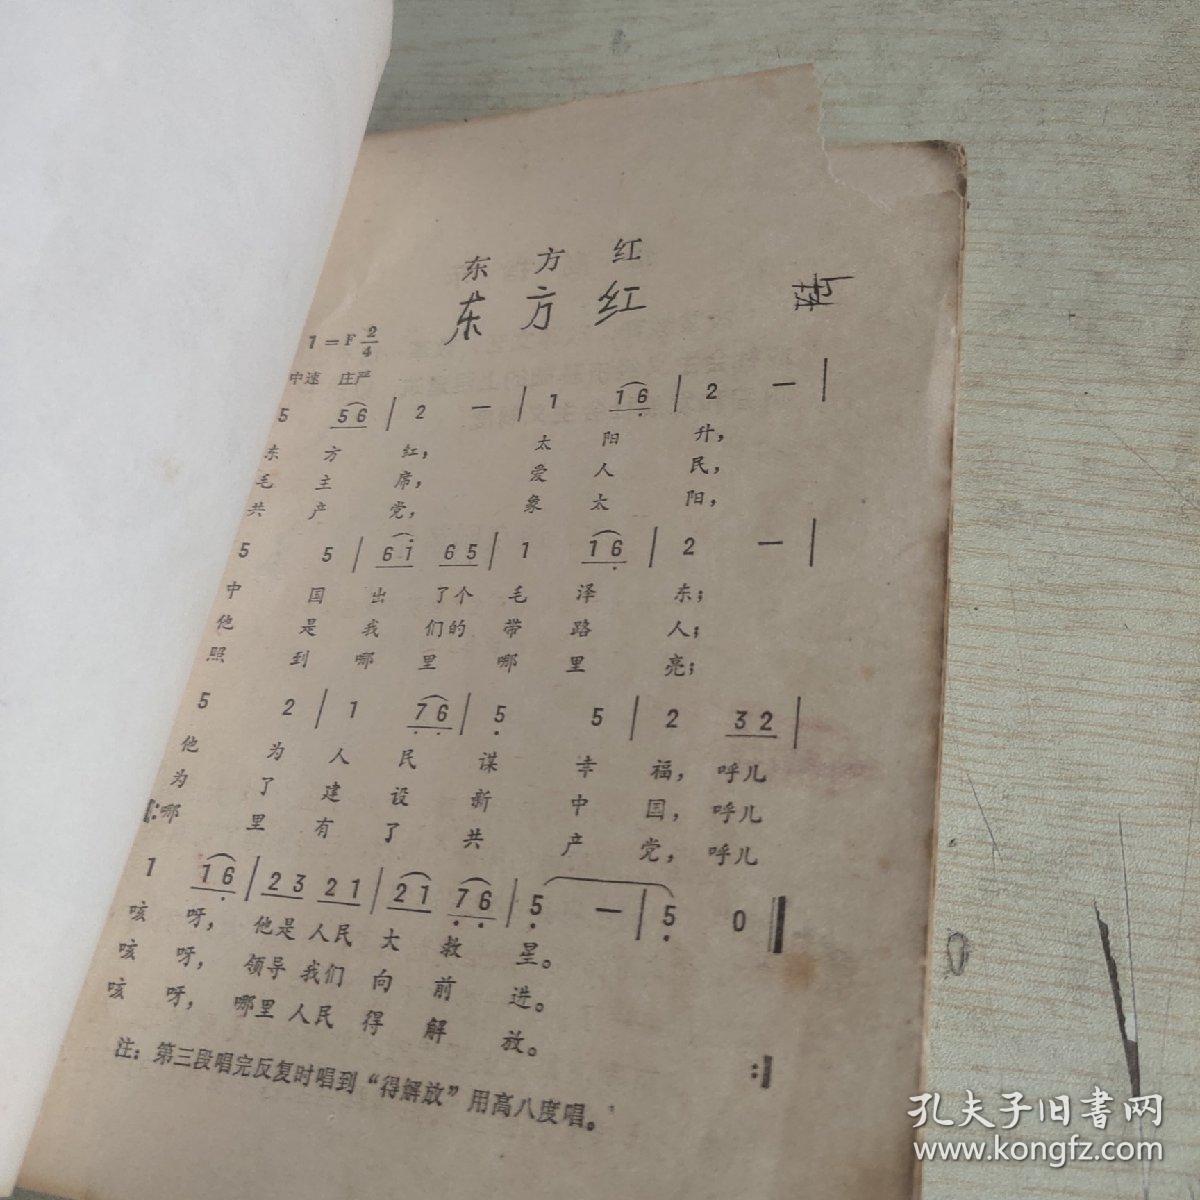 东方红
东方红
1=F 2/4
中速 庄严
5 56 | 2 — | 1 16 | 2 — |
东方红，太阳升，
毛主席，爱人民，
共产党，象太阳，
5 5 | 61 65 | 1 16 | 2 — |
中国出了个毛泽东；
他是我们的带路人；
照到哪里哪里亮；
5 2 | 1 76 | 5 5 | 2 32 |
他为人民谋幸福，呼儿
为了建设新中国，呼儿
哪里有了共产党，呼儿
1 16 | 23 21 | 21 76 | 5 — | 5 0
咳呀，他是人民大救星。
咳呀，领导我们向前进。
咳呀，哪里人民得解放。
注：第三段唱完反复时唱到“得解放”用高八度唱。
孔夫子旧书网
www.kongfz.com